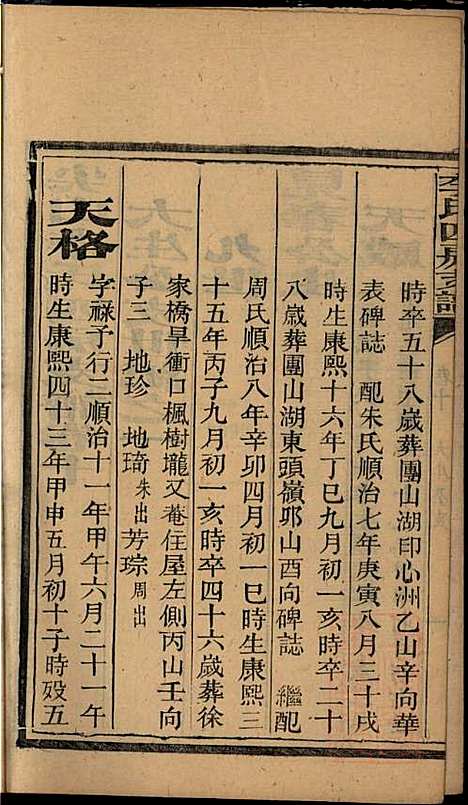 李氏四房支譜
時卒五十八歲葬團山湖印心洲乙山辛向華
表碑誌 配朱氏順治七年庚寅八月三十戌
時生康熙十六年丁巳九月初一亥時卒二十
八歲葬團山湖東頭嶺夘山酉向碑誌 繼配
周氏順治八年辛卯四月初一巳時生康熙三
十五年丙子九月初一亥時卒四十六歲葬徐
家橋旱衝口楓樹壠又菴住屋左側丙山壬向
子三 地珍 地琦朱出芳琮周出
天格 字祿子行二順治十一年甲午六月二十一午
時生康熙四十三年甲申五月初十子時歿五